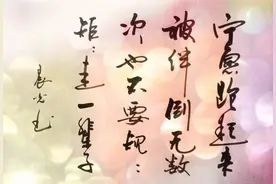 宁愿跑起来
被绊倒无数
次也不要规：
矩：走一辈子